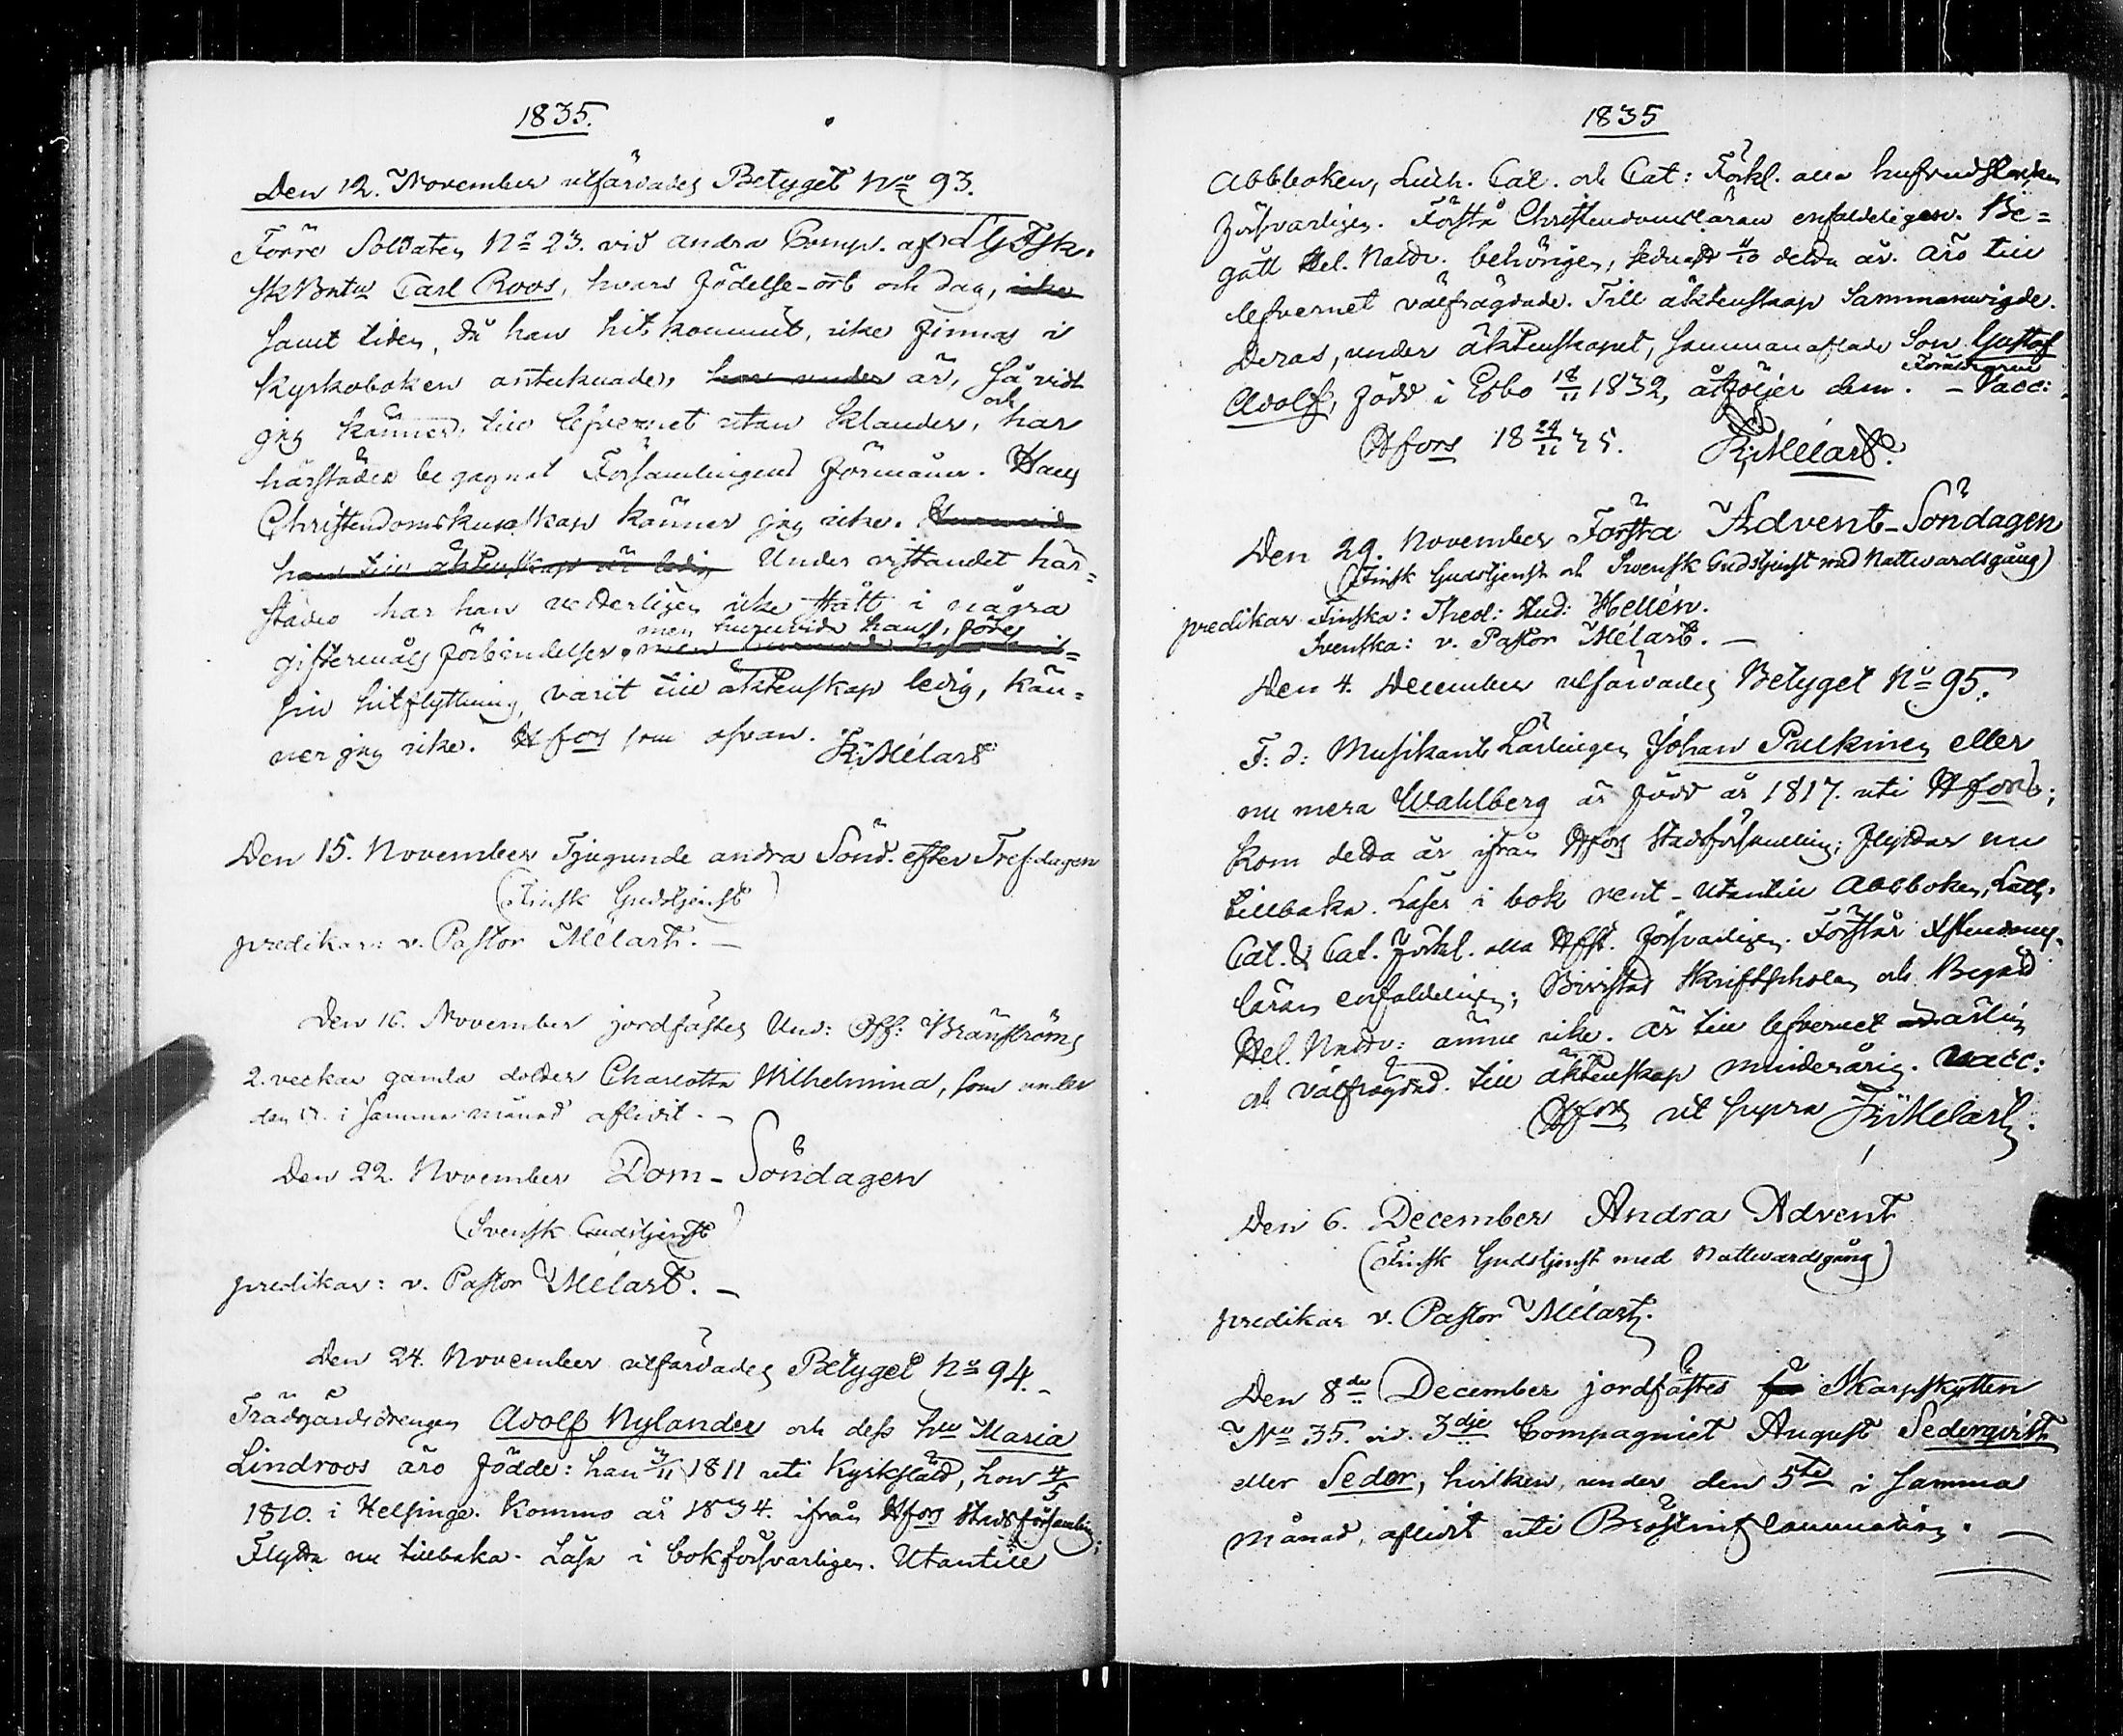 1835.
Den 12. November utfärdades Betyget No 93.
Förre Soldaten No 23. vid andra Comp. af LGFsk.
SkBnttn Carl Roos, hvars födelse-ort och dag, icke
samt tiden, då han hit kommit, icke finnas i
Kyrkoboken antecknade, har under är, så vidt
jag känner, till lefvernet utan klander, och har
härstädes begagnat Församlingens förmåner. Hans
Christendomskunskap känner jag icke. Huruvida
han till äktenskap är ledig Under vistandet här=
städes har han vetterligen icke stått i några
giftermåls förbindelser, men huruvida han, före
sin hitflyttning, varit till äktenskap ledig, kän=
ner jag icke. Hfors som ofvan. Melart
Den 15. November Tjugunde andra Sönd. efter Tref.dagen
(Finsk Gudstjenst)
predikar: v. Pastor Mélart. —
Den 16. November jordfästes Und: Off: Bränströms
2. veckar gamla dotter Charlotta Wilhelmina, som under
den i samma månad aflidit. —
Den 22. November Dom-Söndagen
(Svensk Gudstjenst)
predikar: v. Pastor Mélart. —
Den 24. November utfärdades Betyget No 94. -
Trädgårdsdrengen Adolf Nylander och dess hu Maria
Lindroos äro födde: han 3/11 1811 uti Kyrkslätt, hon 4/5
1810. i Helsinge. Kommo år 1834. ifrån Hfors Stadsförsamling;
Flytta nu tillbaka. Läsa i bok försvarligen. Utantill
1835
Abbboken, Luth. Cat. och Cat: Förkl. alla hufvudstycken
försvarligen. Förstå Christendomsläran enfaldeligen. Be=
gått Hel. Nattv. behörigen, sednast 4/10 detta år. Äro till
lefvernet välfrägdade. Till äktenskap Sammanvigde.
Deras, under äktenskapet, sammanaflade Son Gustaf
Adolf, född i Esbo 18/11 1832, åtföljer dem. Föräldrarne — Vacc:
Hfors 18 24/11 35. Mélart.
Den 29. November Första Advent-Söndagen
(Finsk Gudstjenst och Svensk Gudstjenst med Nattvardsgång)
predikar Finska: Theol: Stud: Hellén.
Svenska: v. Pastor Mélart. —
Den 4. December utfärdades Betyget No 95.
F: d: Musikant Lärlingen Johan Pulkinen eller
nu mera Wahlberg är född år 1817. uti Hfors;
Kom detta år ifrån Hfors Stadsförsamling; flyttar nu
tillbaka. Läser i bok rent - Utantill Abbboken, Luth.
Cat. & Cat. förkl. alla Hfst. försvarligen. Förstår Xstendoms-
läran enfaldeligen; Bivistat Skriftskolan och Begått
Hel. Nattv: ännu icke. Är till lefvernet ärlig
och välfrägdad. till äktenskap minderårig. Vacc:
Hfors ut supra Mélart.
Den 6. December Andra Advent
(Finsk Gudstjenst med Nattvardsgång)
predikar v. Pastor Mélart.
Den 8de December jordfästes Skarpskytten
No 35. vid. 3dje Compagniet August Sederqvist
eller Seder, hvilken, under den 5te i samma
månad, aflidit uti Bröstinflammation. —